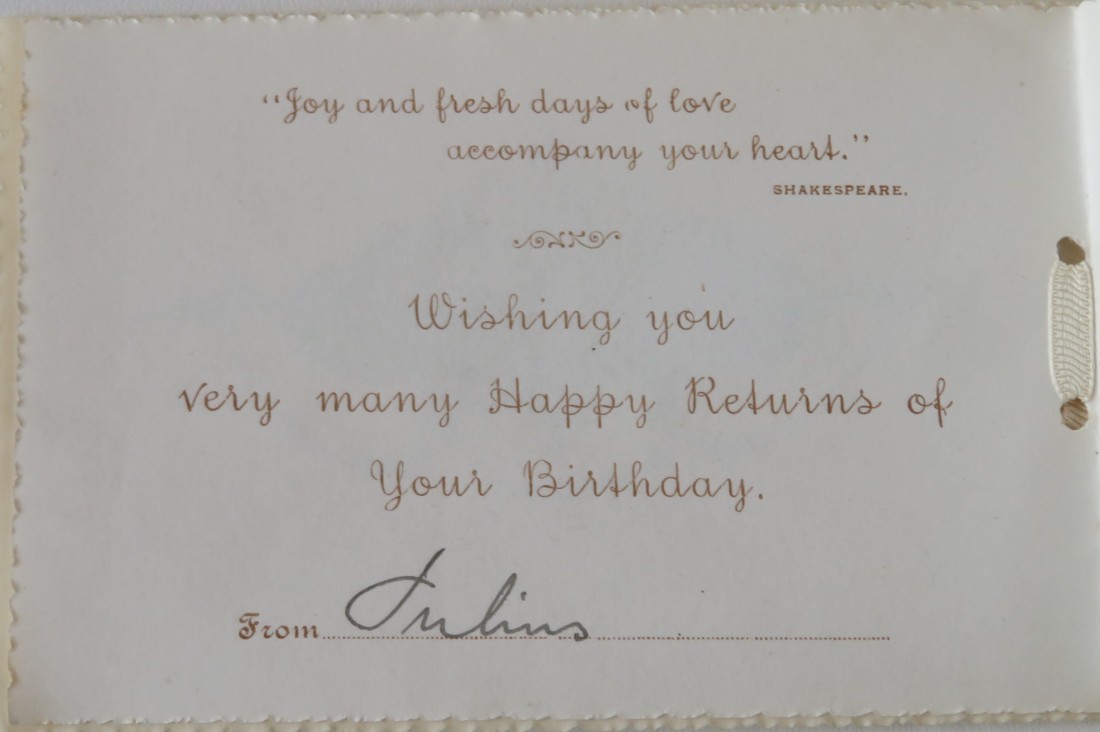 “Joy and fresh days of love
accompany your heart.”
SHAKESPEARE.
Wishing you
very many Happy Returns of
Your Birthday.
From Julius